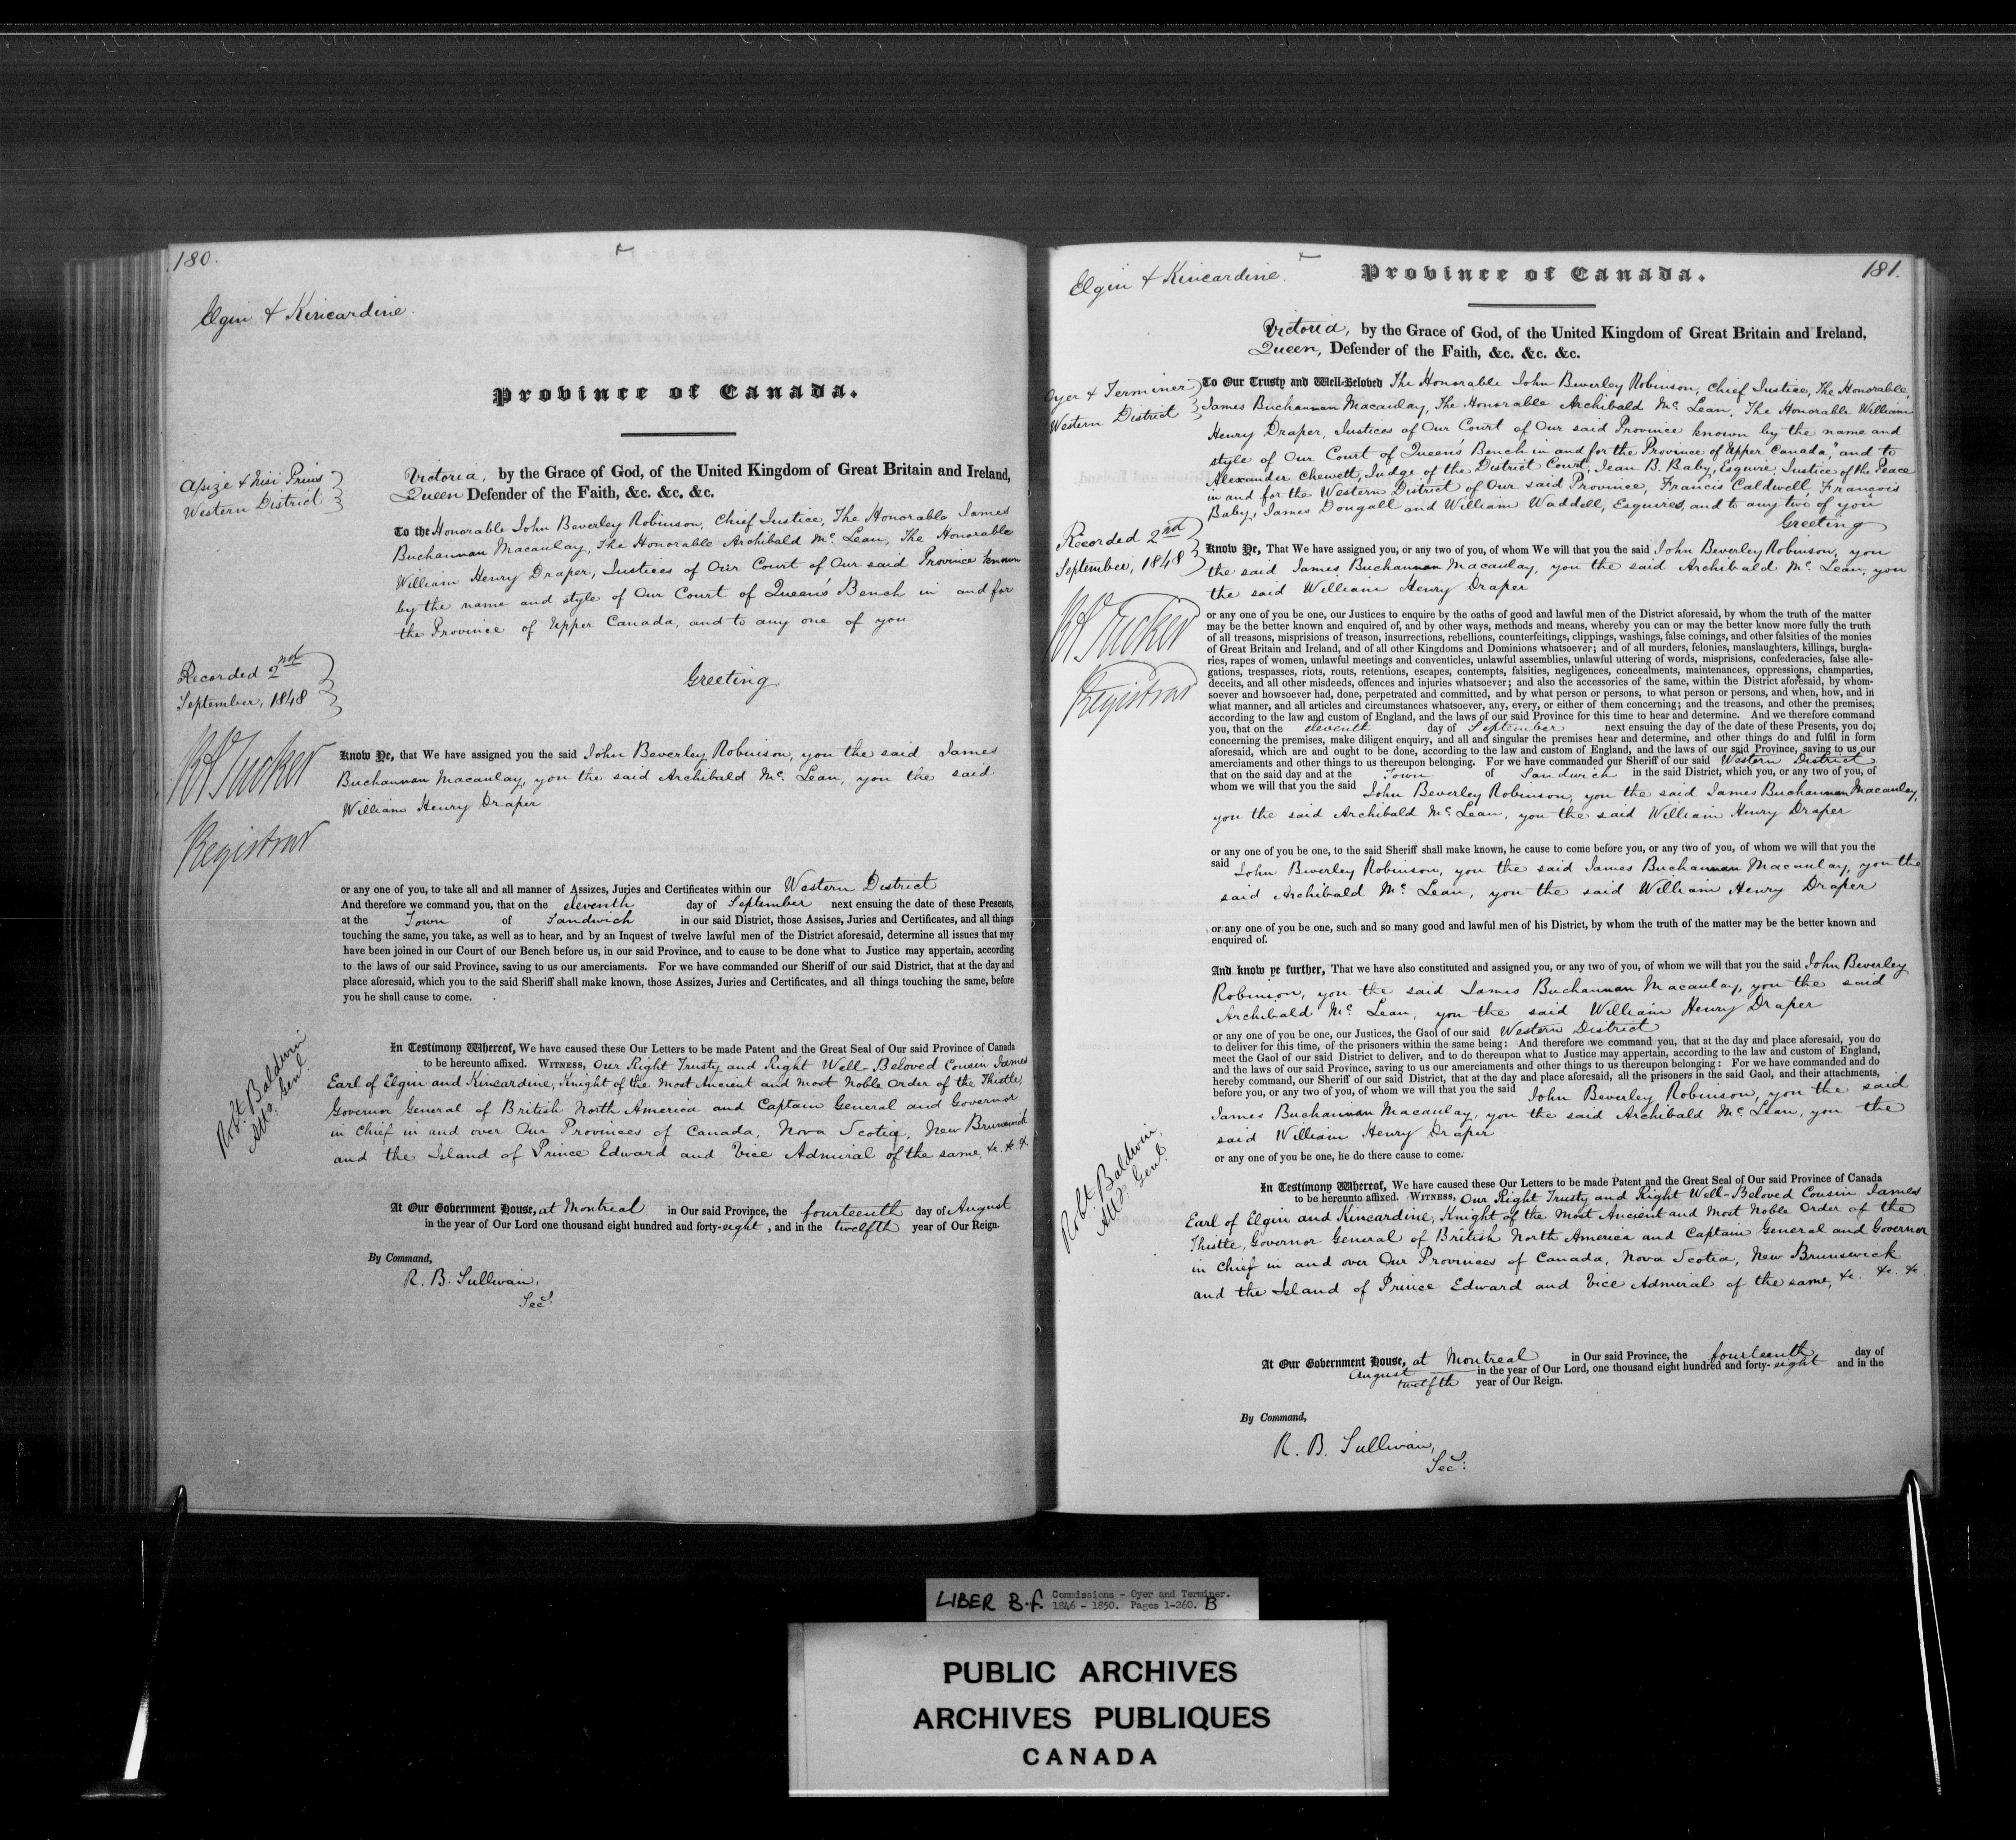 180.
Elgin & Kincardine.
Province of Canada.
Assize & Nisi Prius
Western District
Victoria, by the Grace of God, of the United Kingdom of Great Britain and Ireland,
Queen Defender of the Faith, &c. &c. &c.
To the Honorable John Beverley Robinson, Chief Justice, The Honorable James
Buchannan Macaulay, The Honorable Archibald Mc. Lean, The Honorable
William Henry Draper, Justices of Our Court of Our said Province known
by the name and style of Our Court of Queen's Bench in and for
the Province of Upper Canada, and to any one of you
Greeting
Recorded 2nd
September, 1848
RA Tucker
Registrar
Know Ye, that We have assigned you the said John Beverley Robinson, you the said James
Buchannan Macaulay, you the said Archibald Mc. Lean, you the said
William Henry Draper
or any one of you, to take all and all manner of Assizes, Juries and Certificates within our Western District
And therefore we command you, that on the eleventh day of September next ensuing the date of these Presents,
at the Town of Sandwich in our said District, those Assises, Juries and Certificates, and all things
touching the same, you take, as well as to hear, and by an Inquest of twelve lawful men of the District aforesaid, determine all issues that may
have been joined in our Court of our Bench before us, in our said Province, and to cause to be done what to Justice may appertain, according
to the laws of our said Province, saving to us our amerciaments. For we have commanded our Sheriff of our said District, that at the day and
place aforesaid, which you to the said Sheriff shall make known, those Assizes, Juries and Certificates, and all things touching the same, before
you he shall cause to come.
Robt. Baldwin
Atty. Genl.
In Testimony Whereof, We have caused these Our Letters to be made Patent and the Great Seal of Our said Province of Canada
to be hereunto affixed. Witness, Our Right Trusty and Right Well-Beloved Cousin James
Earl of Elgin and Kincardine, Knight of the Most Ancient and Most Noble Order of the Thistle,
Governor General of British North America and Captain General and Governor
in Chief in and over Our Provinces of Canada, Nova Scotia, New Brunswick
and the Island of Prince Edward and Vice Admiral of the same, &c. &c. &.
At Our Government House, at Montreal in Our said Province, the fourteenth day of August
in the year of Our Lord one thousand eight hundred and forty-eight, and in the twelfth year of Our Reign.
By Command,
R. B. Sullivan,
Secy.
181.
Elgin & Kincardine.
Province of Canada.
Victoria, by the Grace of God, of the United Kingdom of Great Britain and Ireland,
Queen, Defender of the Faith, &c. &c. &c.
Oyer & Terminer
Western District
To Our Trusty and Well-Beloved The Honorable John Beverley Robinson, Chief Justice, The Honorable
James Buchannan Macaulay, The Honorable Archibald Mc. Lean, The Honorable William
Henry Draper, Justices of Our Court of Our said Province known by the name and
style of Our Court of Queen's Bench in and for the Province of Upper Canada," and to
Alexander Chewett, Judge of the District Court, Jean B. Baby, Esquire, Justice of the Peace
in and for the Western District of Our said Province, Francis Caldwell, François
Baby, James Dougall and William Waddell, Esquires, and to any two of you
Greeting
Recorded 2nd
September, 1848
RA Tucker
Registrar
Know Ye, That We have assigned you, or any two of you, of whom We will that you the said John Beverley Robinson, you
the said James Buchannan Macaulay, you the said Archibald Mc. Lean, you
the said William Henry Draper
or any one of you be one, our Justices to enquire by the oaths of good and lawful men of the District aforesaid, by whom the truth of the matter
may be the better known and enquired of, and by other ways, methods and means, whereby you can or may the better know more fully the truth
of all treasons, misprisions of treason, insurrections, rebellions, counterfeitings, clippings, washings, false coinings, and other falsities of the monies
of Great Britain and Ireland, and of all other Kingdoms and Dominions whatsoever; and of all murders, felonies, manslaughters, killings, burgla-
ries, rapes of women, unlawful meetings and conventicles, unlawful assemblies, unlawful uttering of words, misprisions, confederacies, false alle-
gations, trespasses, riots, routs, retentions, escapes, contempts, falsities, negligences, concealments, maintenances, oppressions, champarties,
deceits, and all other misdeeds, offences and injuries whatsoever; and also the accessories of the same, within the District aforesaid, by whom-
soever and howsoever had, done, perpetrated and committed, and by what person or persons, to what person or persons, and when, how, and in
what manner, and all articles and circumstances whatsoever, any, every, or either of them concerning; and the treasons, and other the premises,
according to the law and custom of England, and the laws of our said Province for this time to hear and determine. And we therefore command
you, that on the eleventh day of September next ensuing the day of the date of these Presents, you do,
concerning the premises, make diligent enquiry, and all and singular the premises hear and determine, and other things do and fulfil in form
aforesaid, which are and ought to be done, according to the law and custom of England, and the laws of our said Province, saving to us our
amerciaments and other things to us thereupon belonging. For we have commanded our Sheriff of our said Western District
that on the said day and at the Town of Sandwich in the said District, which you, or any two of you, of
whom we will that you the said John Beverley Robinson, you the said James Buchannan Macaulay,
you the said Archibald Mc. Lean, you the said William Henry Draper
or any one of you be one, to the said Sheriff shall make known, he cause to come before you, or any two of you, of whom we will that you the
said John Beverley Robinson, you the said James Buchannan Macaulay, you the
said Archibald Mc. Lean, you the said William Henry Draper
or any one of you be one, such and so many good and lawful men of his District, by whom the truth of the matter may be the better known and
enquired of.
And know ye further, That we have also constituted and assigned you, or any two of you, of whom we will that you the said John Beverley
Robinson, you the said James Buchannan Macaulay, you the said
Archibald Mc. Lean, you the said William Henry Draper
or any one of you be one, our Justices, the Gaol of our said Western District
to deliver for this time, of the prisoners within the same being: And therefore we command you, that at the day and place aforesaid, you do
meet the Gaol of our said District to deliver, and to do thereupon what to Justice may appertain, according to the law and custom of England,
and the laws of our said Province, saving to us our amerciaments and other things to us thereupon belonging: For we have commanded and do
hereby command, our Sheriff of our said District, that at the day and place aforesaid, all the prisoners in the said Gaol, and their attachments,
before you, or any two of you, of whom we will that you the said John Beverley Robinson, you the said
James Buchannan Macaulay, you the said Archibald Mc. Lean, you the
said William Henry Draper
or any one of you be one, he do there cause to come.
Robt Baldwin,
Atty. Genl.
In Testimony Whereof, We have caused these Our Letters to be made Patent and the Great Seal of Our said Province of Canada
to be hereunto affixed. Witness, Our Right Trusty and Right Well-Beloved Cousin James
Earl of Elgin and Kincardine, Knight of the Most Ancient and Most Noble Order of the
Thistle, Governor General of British North America and Captain General and Governor
in Chief in and over Our Provinces of Canada, Nova Scotia, New Brunswick
and the Island of Prince Edward and Vice Admiral of the same, &c. &c. &c
At Our Government House, at Montreal in Our said Province, the fourteenth day of
August in the year of Our Lord, one thousand eight hundred and forty-eight and in the
twelfth year of Our Reign.
By Command,
R. B. Sullivan,
Secy:
LIBER B.f. Commissions - Oyer and Terminer.
1846 - 1850. Pages 1-260. B
PUBLIC ARCHIVES
ARCHIVES PUBLIQUES
CANADA